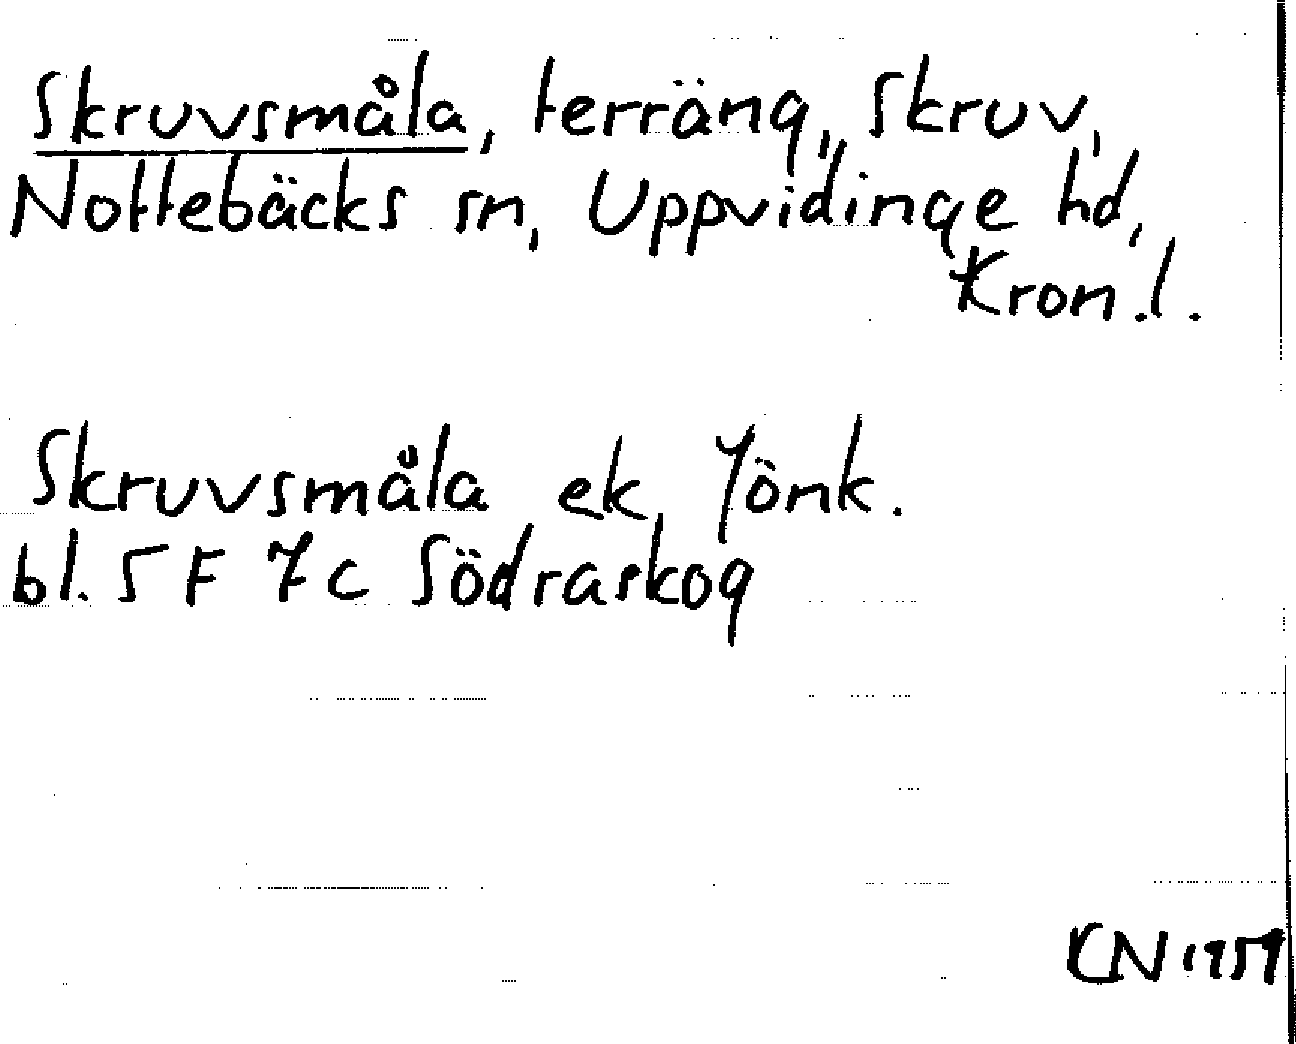 Skruvsmåla, terräng, Skruv,
Nottebäcks sn, Uppvidinge hd,
Kron.l.
Skruvsmåla ek Jönk.
bl. 5 F 7 c Södraskog